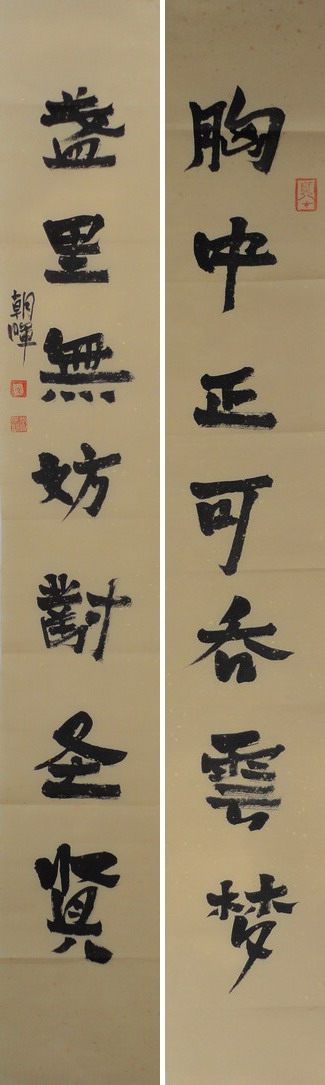 胸中正可吞雲梦
盏里無妨對圣賢
朝暉